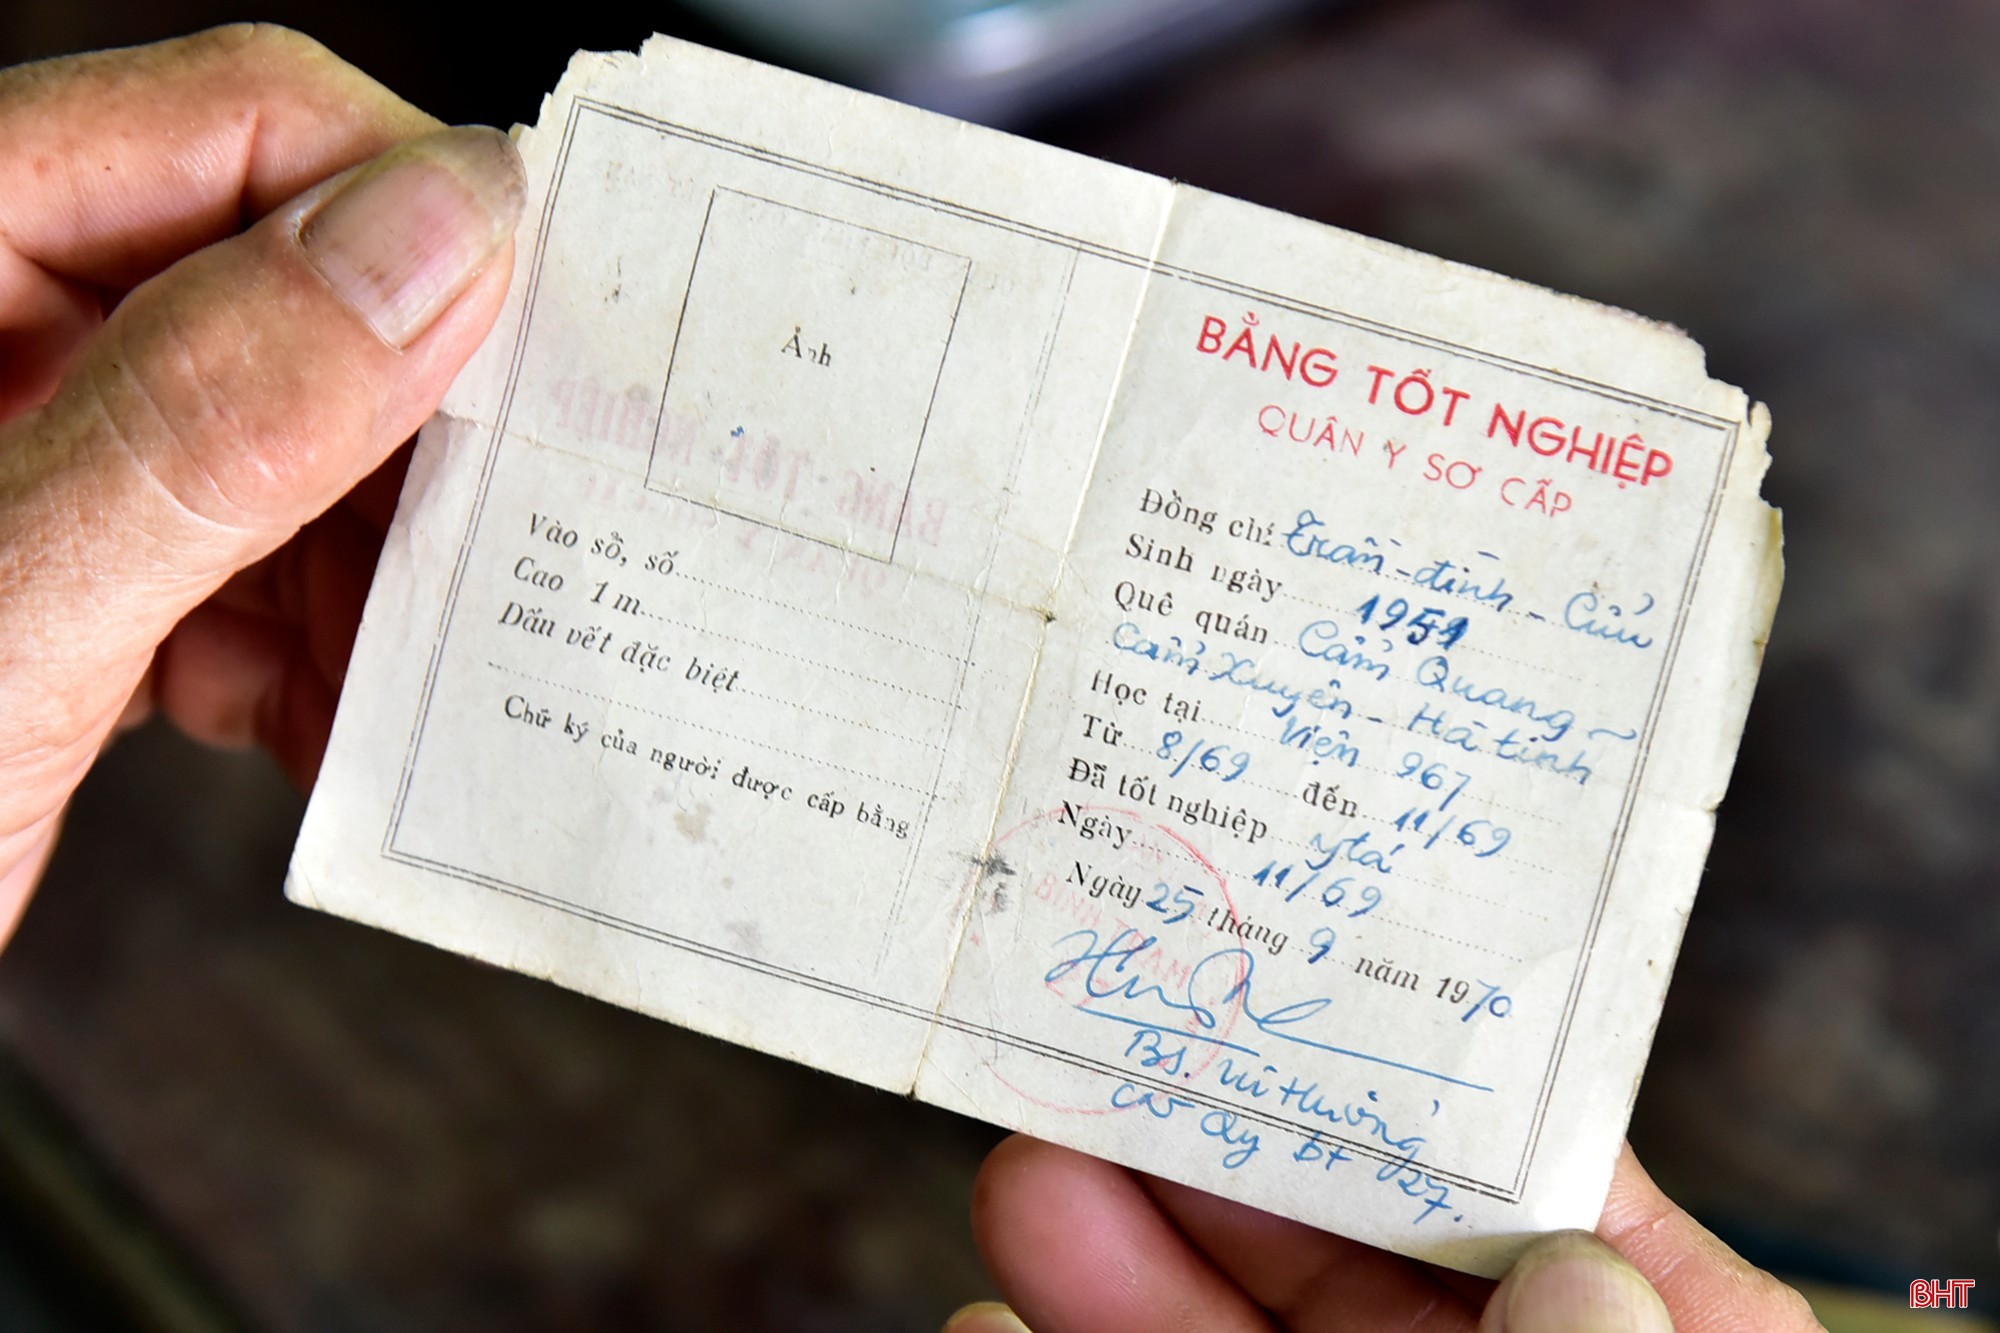 Ảnh
Vào sổ, số
Cao 1m
Dấu vết đặc biệt
Chữ ký của người được cấp bằng
BẰNG TỐT NGHIỆP
QUÂN Y SƠ CẤP
Đồng chí Trần-đình-Cửu
Sinh ngày 1951
Quê quán Cẩm Quang -
Cẩm Xuyên - Hà tĩnh
Học tại Viện 967
Từ 8/69 đến 11/69
Đã tốt nghiệp y tá
Ngày 11/69
Ngày 25 tháng 9 năm 1970
Bs.
Qy bt 27.
BHT